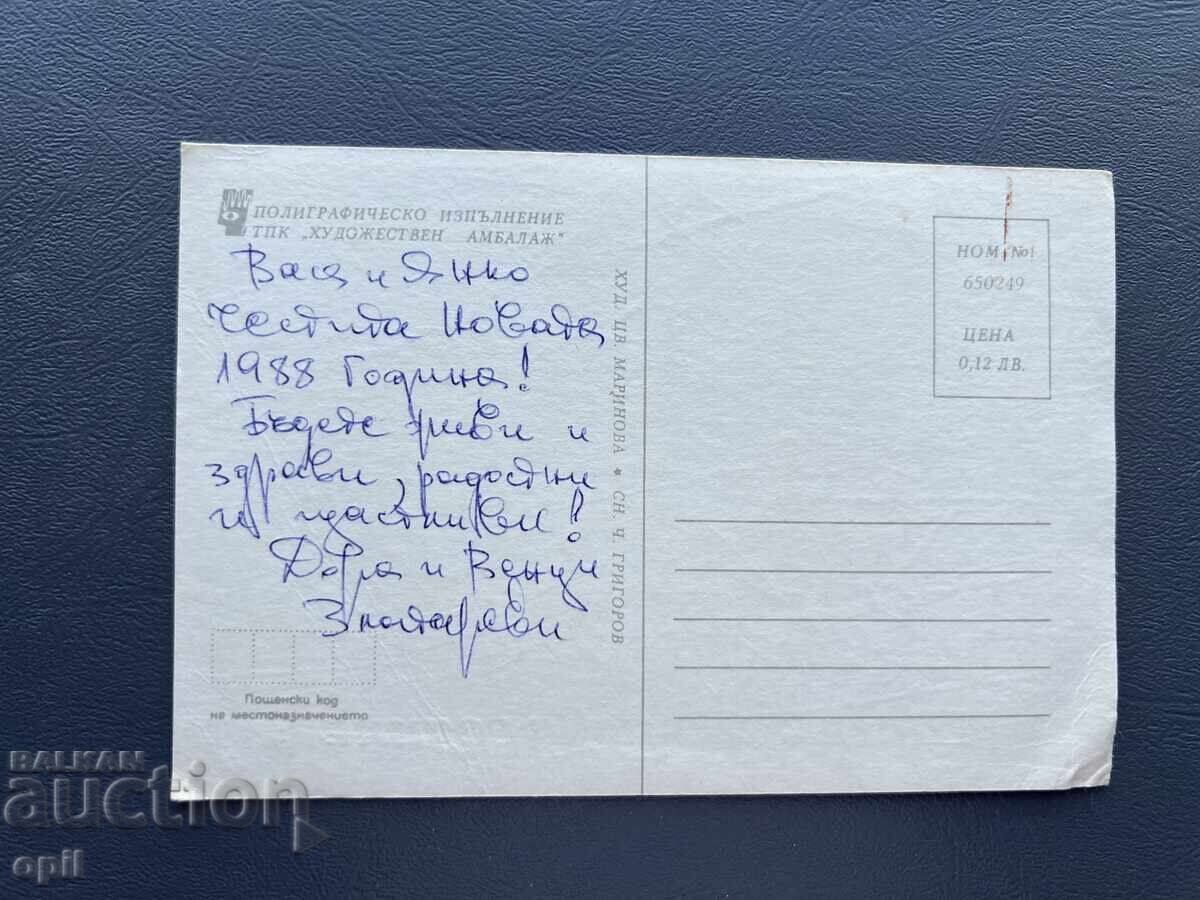 ПОЛИГРАФИЧЕСКО ИЗПЪЛНЕНИЕ
ТПК „ХУДОЖЕСТВЕН АМБАЛАЖ"
Васа и Янко
Честита Новата
1988 Година!
Бъдете живи и
здрави, радостни
и щастливи!
Дора и
Златареви
Пощенски код
на местоназначението
ХУД ЦВ МАРИНОВА * СН. Ч. ГРИГОРОВ
НОМ. №1
650249
ЦЕНА
0,12 ЛВ.
BALKAN
auction
opil